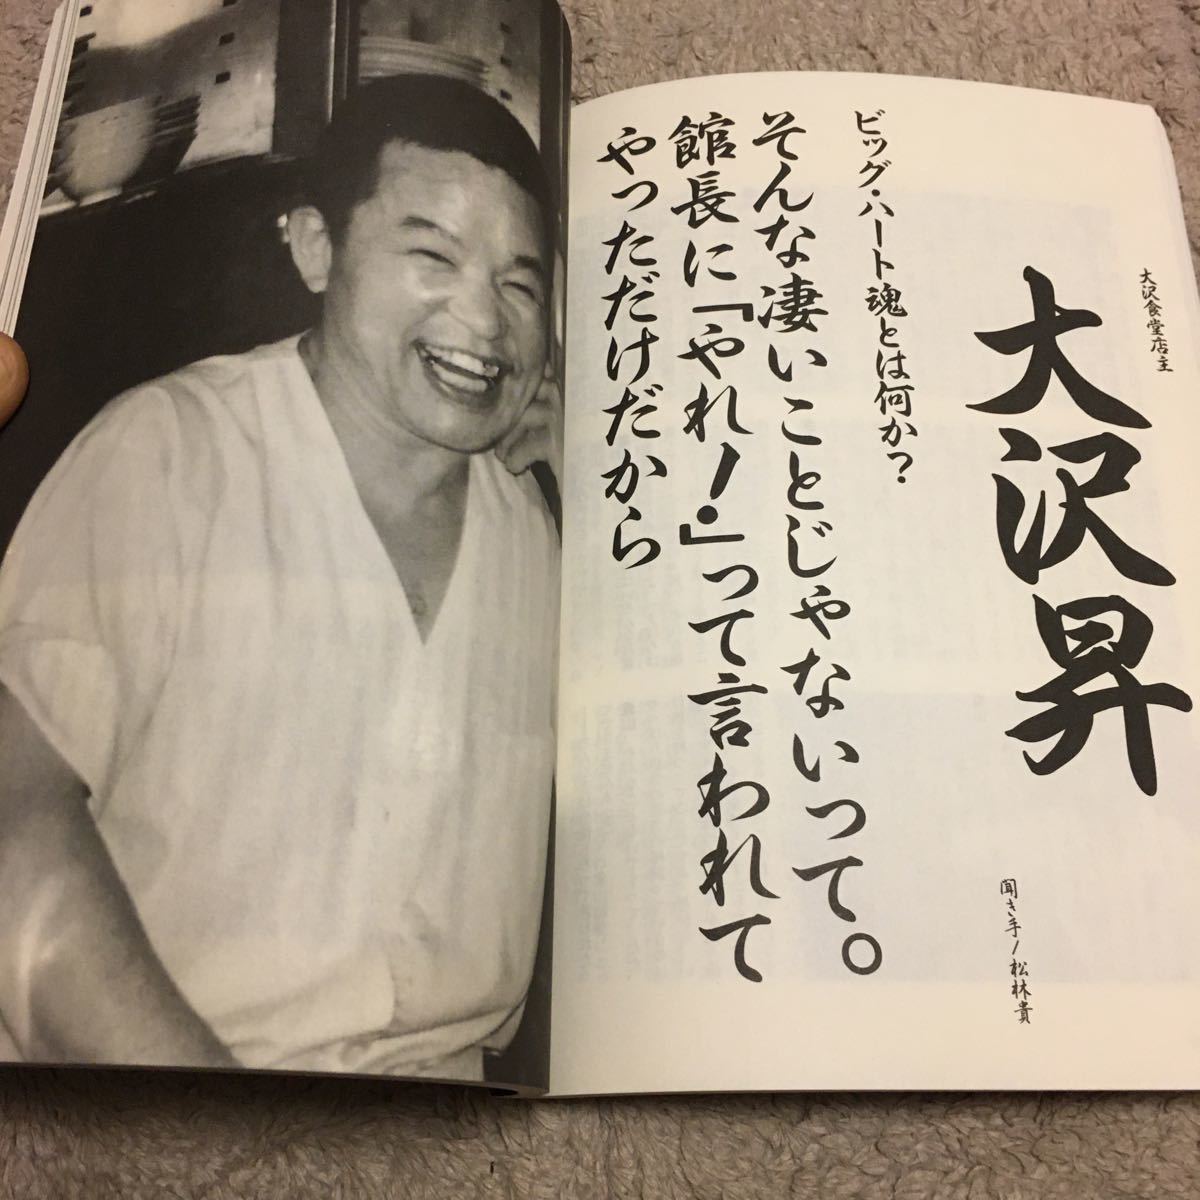 大沢食堂店主
大沢昇
聞き手/松林貴
ビッグ・ハート魂とは何か?
そんな凄いことじゃないって。
館長に「やれ!」って言われて
やっただけだから